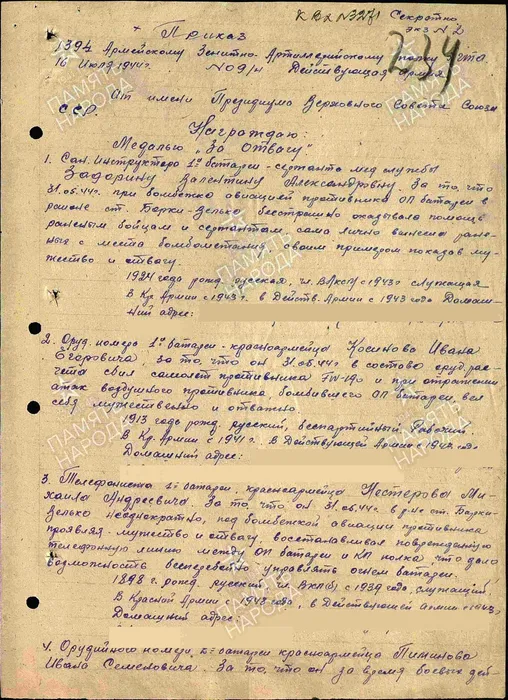 К вх N 3271 Секретно
экз N 2
Приказ
234
1394 Армейскому Зенитно-Артиллерийскому полку
16 Июля 1944 г. N 09/н Действующая Армия
От имени Президиума Верховного Совета Союза
ССР.
Награждаю:
Медалью "За Отвагу"
1. Сан. Инструктора 1ой батареи - сержанта мед службы
Задорину Валентину Александровну. За то, что
31.05.44 г. при бомбежке авиацией противника ОП батареи в
районе ст. Берки-Зелько бесстрашно оказывала помощь
раненым бойцам и сержантам, сама лично вынесла ране-
ных с места бомбометания, своим примером показав му-
жество и отвагу.
1924 года рожд. русская, чл. ВЛКСМ с 1943 г. служащая
В Кр. Армии с 1943 г. в Действ. Армии с 1943 года Домаш-
ний адрес:
2. Оруд. номера 1ой батареи - красноармейца Косинова Ивана
Егоровича за то, что он 31.05.44 г. в составе оруд. рас-
чета сбил самолет противника FW-190 и при отражении
атак воздушного противника бомбившего ОП батареи, вел
себя мужественно и отважно
1913 года рожд. русский, беспартийный, Рабочий.
В Кр. Армии с 1941 г. в Действующей Армии с года
Домашний адрес:
3. Телефониста батареи, красноармейца Нестерова Ми-
хаила Андреевича. За то, что он 31.05.44 г. в р-не ст. Берки-
Зелько неоднократно, под бомбежкой авиации противника
проявляя мужество и отвагу, восстанавливал поврежденную
телефонную линию между ОП батареи и КП полка, что дало
возможность бесперебойно управлять огнем батареи.
1898 г. рожд. русский, чл. ВКП(б) с 1939 года, служащий
В Красной Армии с 1943 года, в Действующей Армии с 1943 г,
Домашний адрес:
4. Орудийного номера батареи красноармейца Пиминова
Ивана Семеновича. За то, что он за время боевых дей-
ПАМЯТЬ НАРОДА